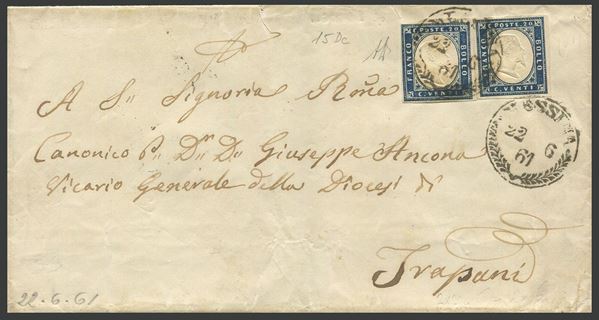 15Dc
C. POSTE 20
FRANCO
BOLLO
C. VENTI
C. POSTE 20
FRANCO
BOLLO
C. VENTI
22
61
MESSINA
22 6
61
A S.ˢ Signoria Rm̃a
Canonico P.ᵉ D.ʳ D.ⁿ Giuseppe Ancona
Vicario Generale della Diocesi di
Trapani
22-6-61